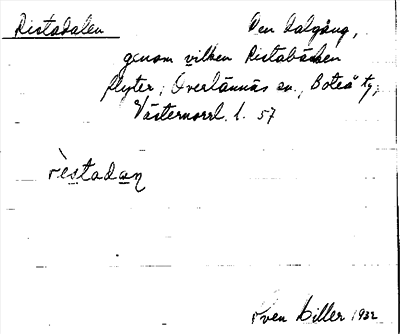 Ristadalen Den dalgång,
genom vilken Ristabäcken
flyter, Överlännäs sn., Boteå tg,
Västernorrl. l. 57
rèstadan
Sven Liller 1932